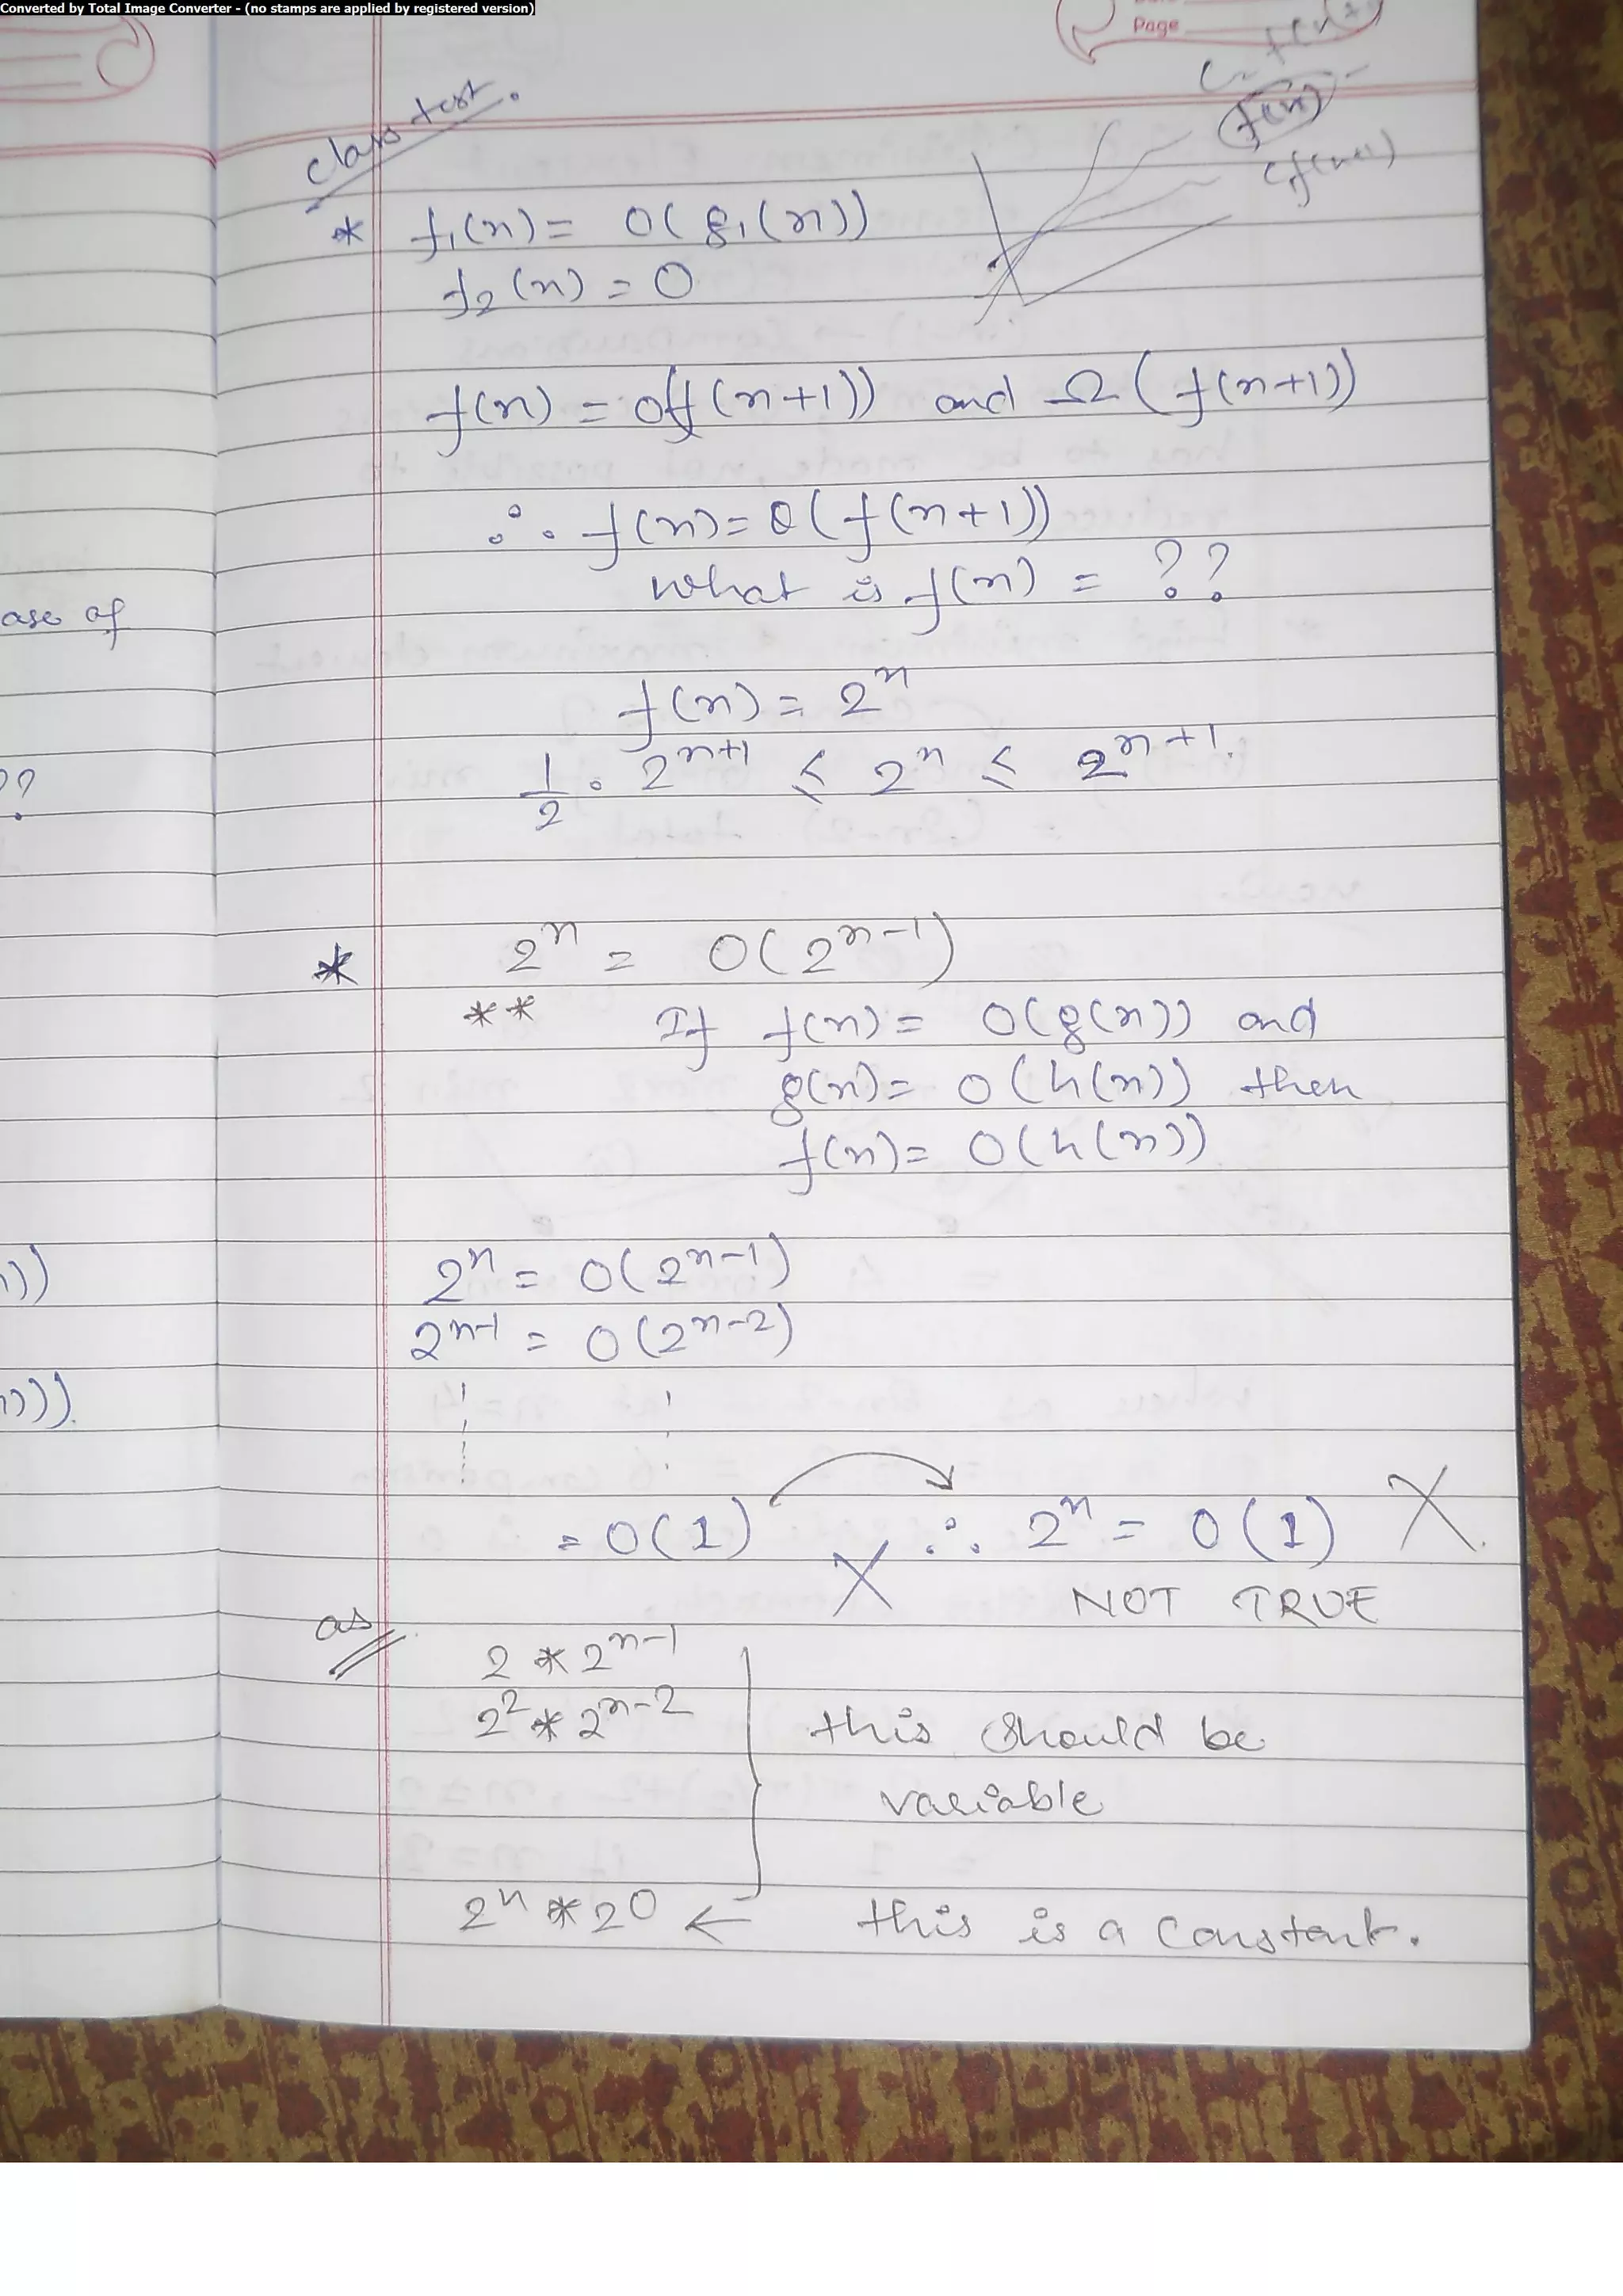 Converted by Total Image Converter - (no stamps are applied by registered version)
Page
class test.
f(n)
c f(n+1)
* f₁(n) = O(g₁(n))
f₂(n) = O
f(n) = O(f(n+1)) and Ω(f(n+1))
∴ f(n) = θ(f(n+1))
what is f(n) = ??
f(n) = 2ⁿ
1/2 · 2ⁿ⁺¹ ≤ 2ⁿ ≤ 2ⁿ⁺¹.
* 2ⁿ = O(2ⁿ⁻¹)
** If f(n) = O(g(n)) and
g(n) = O(h(n)) then
f(n) = O(h(n))
2ⁿ = O(2ⁿ⁻¹)
2ⁿ⁻¹ = O(2ⁿ⁻²)
= O(1) ∴ 2ⁿ = O(1) X
X NOT TRUE
as
2 * 2ⁿ⁻¹
2² * 2ⁿ⁻² this should be
variable
2ⁿ * 2⁰ ← this is a constant.
ase of
??
))
))).